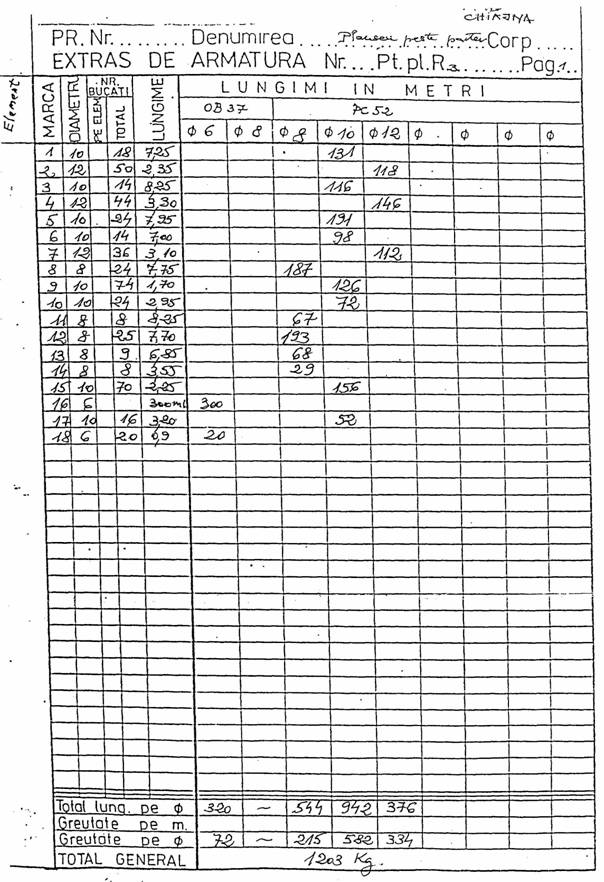 CHIAJNA
PR. Nr. ........ Denumirea ..... Planseu peste parter Corp .....
EXTRAS DE ARMATURA Nr. ... Pt. pl. R3 ....... Pag. 1..
Element
MARCA DIAMETRU NR. BUCATI PE ELEM. TOTAL LUNGIME LUNGIMI IN METRI
OB 37 PC 52
Φ 6 Φ 8 Φ 8 Φ 10 Φ 12 Φ . Φ Φ Φ
1 10 18 7,25 131
2 12 50 2,35 118
3 10 14 8,25 116
4 12 44 3,30 146
5 10 24 7,95 191
6 10 14 7,00 98
7 12 36 3,10 112
8 8 24 7,75 187
9 10 74 1,70 126
10 10 24 2,95 72
11 8 8 8,35 67
12 8 25 7,70 193
13 8 9 6,85 68
14 8 8 3,55 29
15 10 70 2,25 156
16 6 300ml 300
17 10 16 3,20 52
18 6 20 0,9 20
Total lung. pe Φ 320 ~ 544 942 376
Greutate pe m.
Greutate pe Φ 72 ~ 215 582 334
TOTAL GENERAL 1203 Kg.